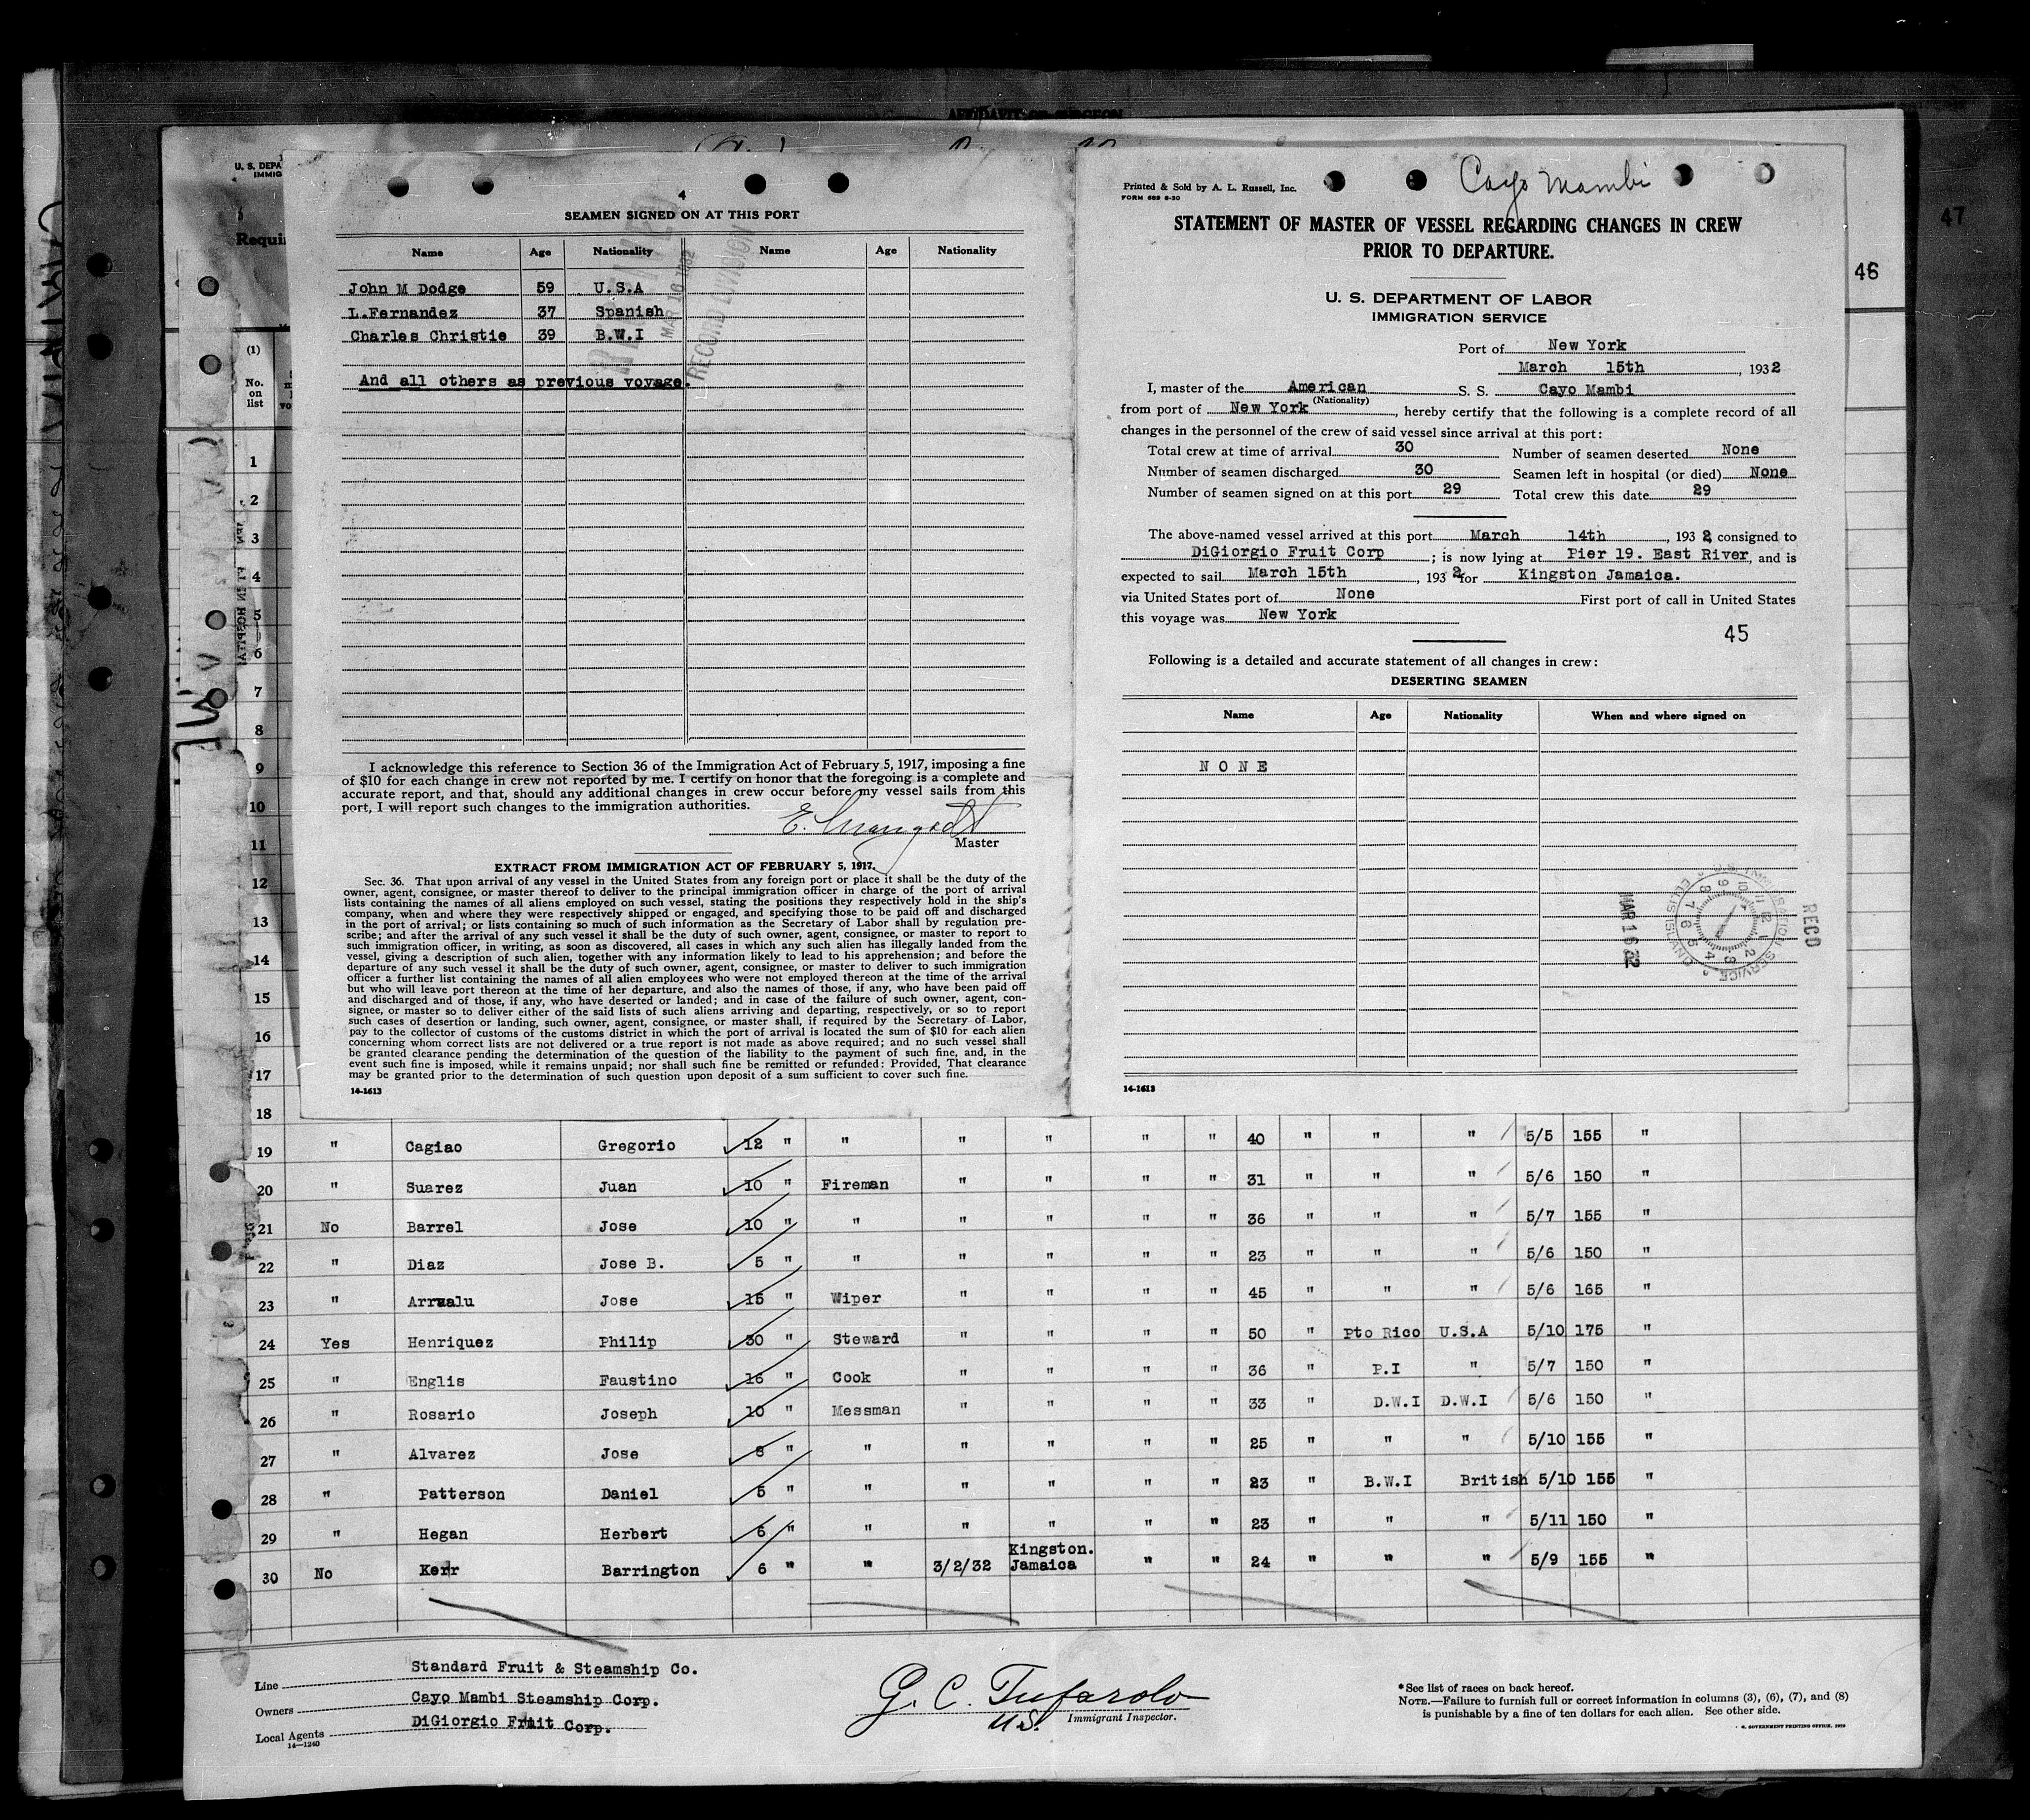 AFFIDAVIT OF SURGEON
47
46
U. S. DEPA
IMMIG
Requi
(1)
No.
on
list
1
2
3
4
5
6
7
8
9
10
11
12
13
14
15
16
17
18
4
SEAMEN SIGNED ON AT THIS PORT
Name Age Nationality Name Age Nationality
John M Dodge 59 U.S.A
L.Fernandez 37 Spanish
Charles Christie 39 B.W.I
And all others as previous voyage.
MAR 16 1932
RECORD DIVISION
I acknowledge this reference to Section 36 of the Immigration Act of February 5, 1917, imposing a fine
of $10 for each change in crew not reported by me. I certify on honor that the foregoing is a complete and
accurate report, and that, should any additional changes in crew occur before my vessel sails from this
port, I will report such changes to the immigration authorities.
E.
Master
EXTRACT FROM IMMIGRATION ACT OF FEBRUARY 5, 1917.
Sec. 36. That upon arrival of any vessel in the United States from any foreign port or place it shall be the duty of the
owner, agent, consignee, or master thereof to deliver to the principal immigration officer in charge of the port of arrival
lists containing the names of all aliens employed on such vessel, stating the positions they respectively hold in the ship's
company, when and where they were respectively shipped or engaged, and specifying those to be paid off and discharged
in the port of arrival; or lists containing so much of such information as the Secretary of Labor shall by regulation pre-
scribe; and after the arrival of any such vessel it shall be the duty of such owner, agent, consignee, or master to report to
such immigration officer, in writing, as soon as discovered, all cases in which any such alien has illegally landed from the
vessel, giving a description of such alien, together with any information likely to lead to his apprehension; and before the
departure of any such vessel it shall be the duty of such owner, agent, consignee, or master to deliver to such immigration
officer a further list containing the names of all alien employees who were not employed thereon at the time of the arrival
but who will leave port thereon at the time of her departure, and also the names of those, if any, who have been paid off
and discharged and of those, if any, who have deserted or landed; and in case of the failure of such owner, agent, con-
signee, or master so to deliver either of the said lists of such aliens arriving and departing, respectively, or so to report
such cases of desertion or landing, such owner, agent, consignee, or master shall, if required by the Secretary of Labor,
pay to the collector of customs of the customs district in which the port of arrival is located the sum of $10 for each alien
concerning whom correct lists are not delivered or a true report is not made as above required; and no such vessel shall
be granted clearance pending the determination of the question of the liability to the payment of such fine, and, in the
event such fine is imposed, while it remains unpaid; nor shall such fine be remitted or refunded: Provided, That clearance
may be granted prior to the determination of such question upon deposit of a sum sufficient to cover such fine.
14-1613
Cayo Mambi
Printed & Sold by A. L. Russell, Inc.
FORM 689 8-30
STATEMENT OF MASTER OF VESSEL REGARDING CHANGES IN CREW
PRIOR TO DEPARTURE.
U. S. DEPARTMENT OF LABOR
IMMIGRATION SERVICE
Port of New York
March 15th, 1932
I, master of the American S. S. Cayo Mambi
(Nationality)
from port of New York, hereby certify that the following is a complete record of all
changes in the personnel of the crew of said vessel since arrival at this port:
Total crew at time of arrival 30 Number of seamen deserted None
Number of seamen discharged 30 Seamen left in hospital (or died) None
Number of seamen signed on at this port 29 Total crew this date 29
The above-named vessel arrived at this port March 14th, 1932, consigned to
DiGiorgio Fruit Corp; is now lying at Pier 19. East River, and is
expected to sail March 15th, 1932 for Kingston Jamaica.
via United States port of None First port of call in United States
this voyage was New York
45
Following is a detailed and accurate statement of all changes in crew:
DESERTING SEAMEN
Name Age Nationality When and where signed on
NONE
MAR 16 32
RECD
U.S. IMMIGRATION SERVICE ELLIS ISLAND
14-1613
19 " Cagiao Gregorio 12 " " " " " " 40 " " " 5/5 155 "
20 " Suarez Juan 10 " Fireman " " " " 31 " " " 5/6 150 "
21 No Barrel Jose 10 " " " " " " 36 " " " 5/7 155 "
22 " Diaz Jose B. 5 " " " " " " 23 " " " 5/6 150 "
23 " Arrualu Jose 15 " Wiper " " " " 45 " " " 5/6 165 "
24 Yes Henriquez Philip 30 " Steward " " " " 50 " Pto Rico U.S.A 5/10 175 "
25 " Englis Faustino 16 " Cook " " " " 36 " P.I " 5/7 150 "
26 " Rosario Joseph 10 " Messman " " " " 33 " D.W.I D.W.I 5/6 150 "
27 " Alvarez Jose 8 " " " " " " 25 " " " 5/10 155 "
28 " Patterson Daniel 5 " " " " " " 23 " B.W.I British 5/10 155 "
29 " Hegan Herbert 6 " " " " " " 23 " " " 5/11 150 "
30 No Kerr Barrington 6 " " 3/2/32 Kingston. Jamaica " " 24 " " " 5/9 155 "
Line Standard Fruit & Steamship Co.
Owners Cayo Mambi Steamship Corp.
Local Agents DiGiorgio Fruit Corp.
14-1240
G. C. Tufarolo
U.S. Immigrant Inspector.
*See list of races on back hereof.
NOTE.—Failure to furnish full or correct information in columns (3), (6), (7), and (8)
is punishable by a fine of ten dollars for each alien. See other side.
U. S. GOVERNMENT PRINTING OFFICE. 1929